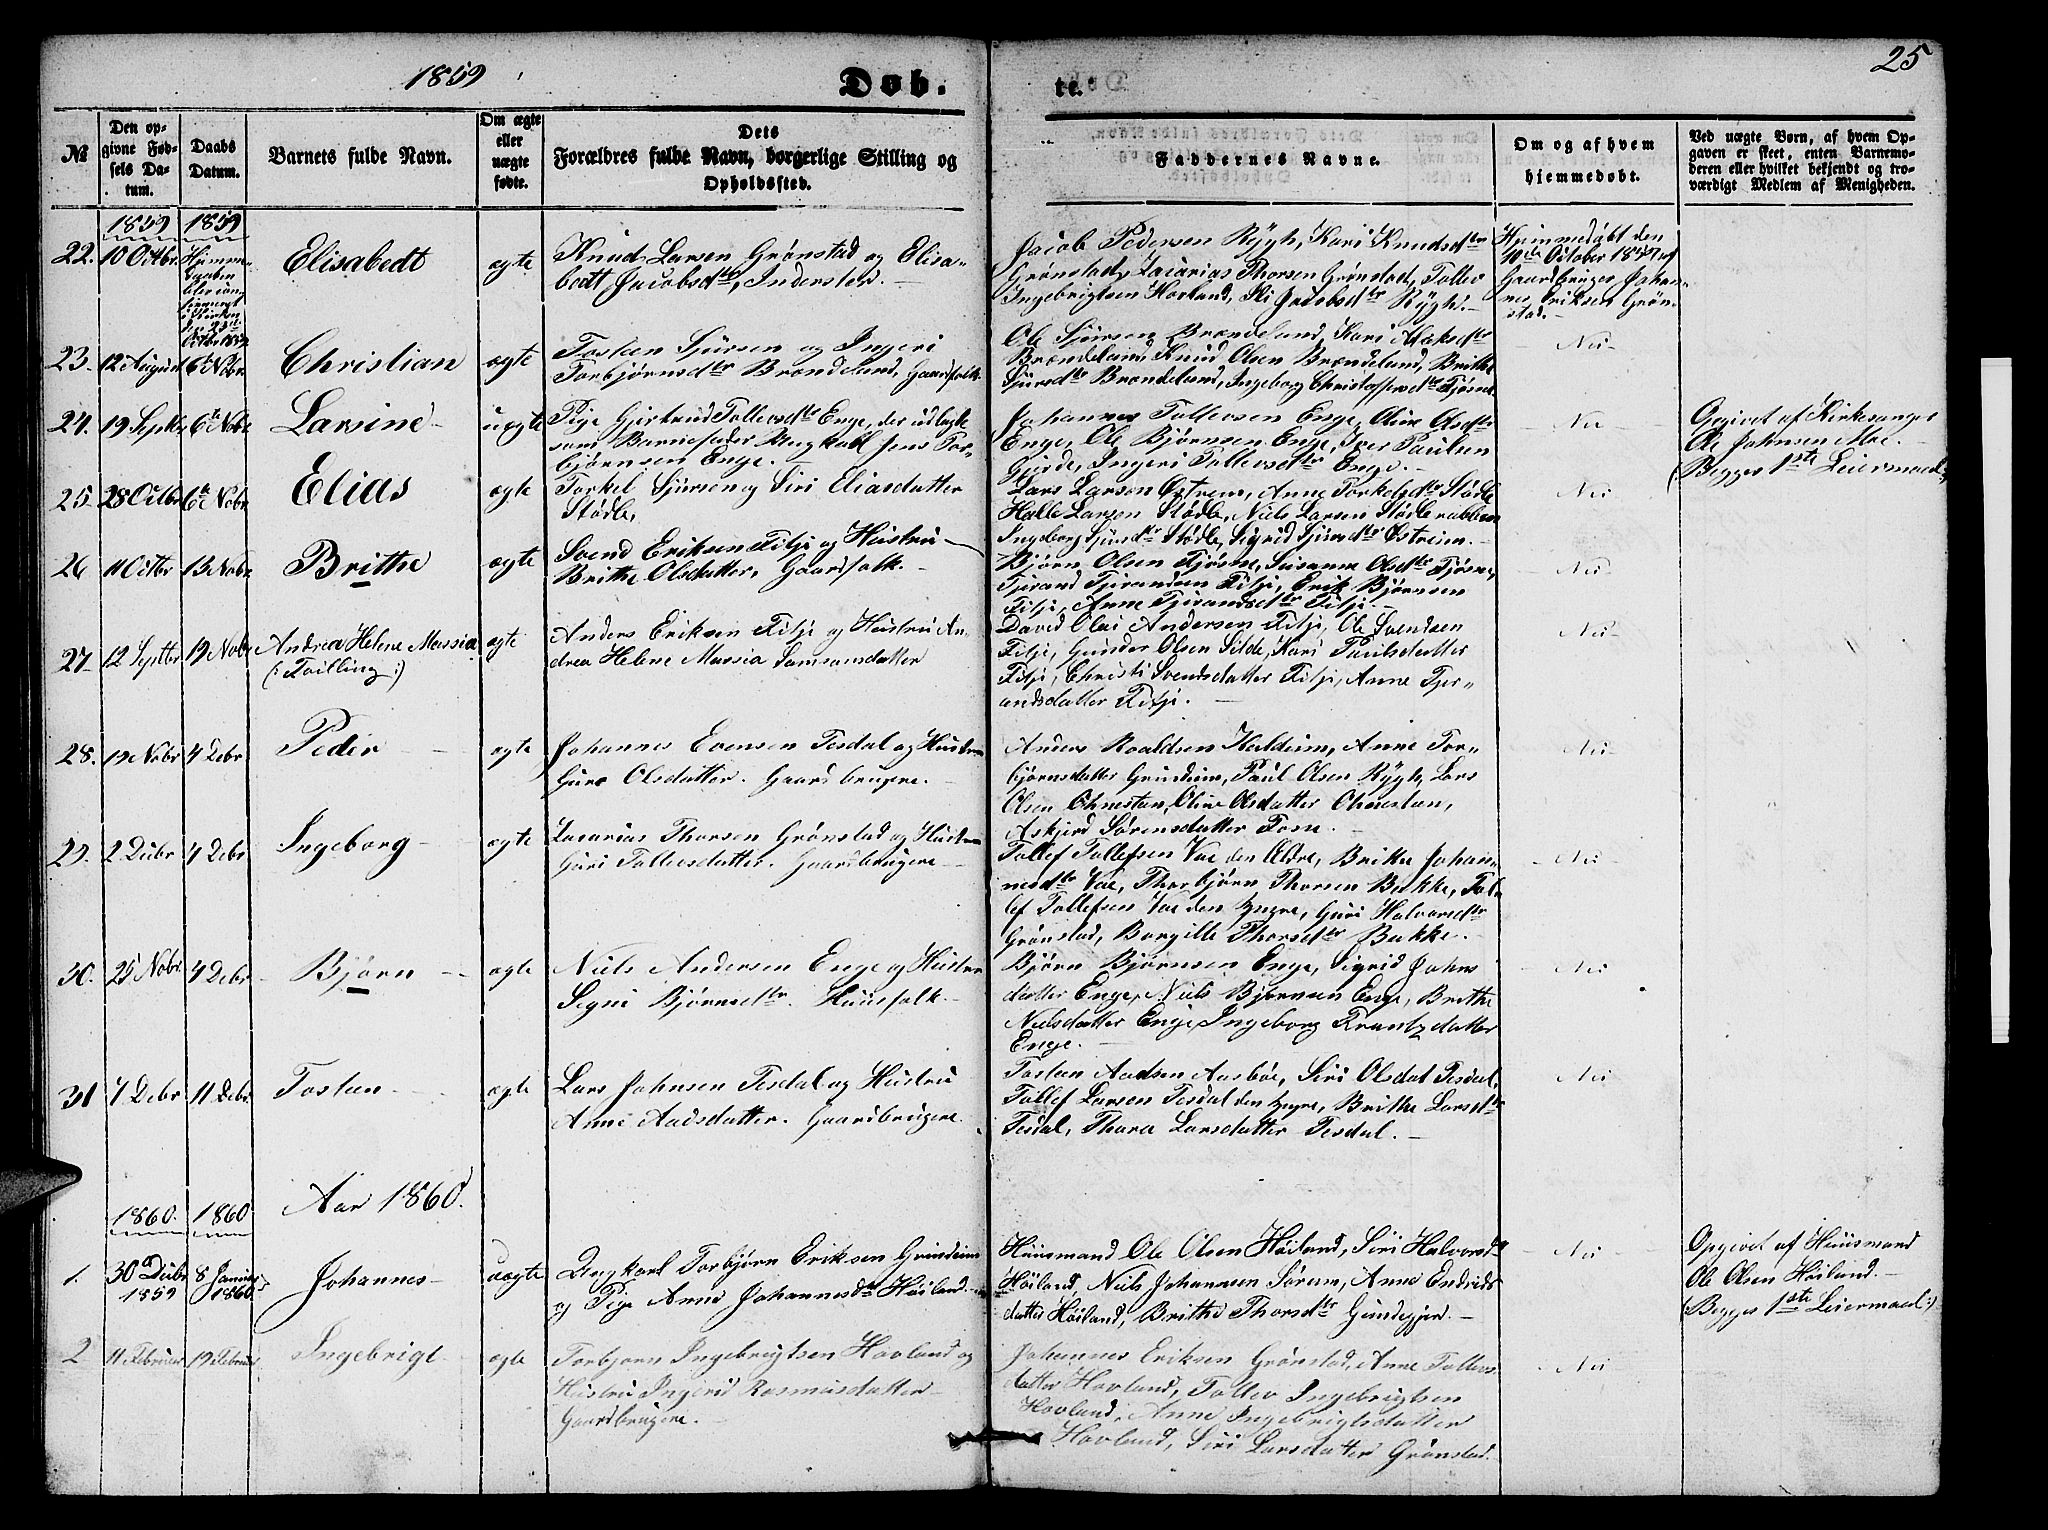 1859
Døb.
te.
25
№
Den op-
givne Fød-
sels Da-
tum.
Daabs
Datum.
Barnets fulde Navn.
Om ægte
eller
uægte
fødte.
Dets
Forældres fulde Navn, borgerlige Stilling og
Opholdssted.
Faddernes Navne.
Om og af hvem
hjemmedøbt.
Ved uægte Børn, af hvem Op-
gaven er skeet, enten Barnemo-
deren eller hvilket bekjendt og tro-
værdigt Medlem af Menigheden.
1859
1859
22. 10 Octbr.
Elisabedt
ægte
Knud Larsen Grønstad og Elisa-
bedt Jacobsdtr, Inderster.
Jacob Pedersen Rygh, Kari Knudsdtr
Grønstad, Zacarias Thorsen Grønstad, Tollev
Ingebrigtsen Hovland, Siri Jacobsdtr Rygh.
Hjemmedøbt den
10de October 1859 af
Gaardbruger Johan-
nes Eriksen Grøn-
stad.
23. 12 August 6te Nobr.
Christian
ægte
Tosten Sjursen og Ingeri
Torbjørnsdtr Brændeland, Gaardfolk.
Ole Sjursen Brændeland, Kari
Brændeland, Knud Olsen Brændeland, Brithe
Sjursdtr Brændeland, Ingeborg Christoffersdtr Tjøsne
Nei
24. 19 Septbr 6te Nobr.
Larsine
uægte
Pige Gjertrud Tollevsdtr Enge, der udlagte
som Barnefader Ungkarl Jens Tor-
bjørnsen Enge.
Johannes Tollevsen Enge, Oline Olsdtr
Enge, Ole Bjørnsen Enge, Iver Paulsen
Gjerde, Ingeri Tollevsdtr Enge.
Nei
Opgivet af Kirkesanger
Ole Johnsen Moe.
(Begges 1ste Leiermaal:)
25. 28 Octbr 6te Nobr.
Elias
ægte
Torkel Sjursen og Siri Eliasdatter
Stødle,
Lars Larsen Østrem, Anne Torkelsdtr Stødle
Halle Larsen Stødle, Niels Larsen Stødlerabben
Ingeborg Sjursdtr Stødle, Sigrid Sjursdtr Østreim.
Nei
26 11 Octbr 13 Nobr.
Brithe
ægte
Svend Eriksen Fitje og Hustru
Brithe Olsdatter, Gaardfolk.
Bjørn Olsen Tjøsne, Susanne Olsdtr Tjøsne,
Tjerand Tjerandsen Fitje, Erik Bjørnsen
Fitje, Anne Tjerandsdtr Fitje.
Nei
27. 12 Septbr 19 Nobr
Andrea Helene Massia
(:Tvilling:)
ægte
Anders Eriksen Fitje og Hustru An-
drea Helene Massia Samsonsdatter
David Olai Andersen Fitje, Ole Svendsen
Fitje, Gunder Olsen Silde, Kari Paulsdatter
Fitje, Christi Svendsdatter Fitje, Anne Tjer-
andsdatter Fitje.
Nei
28. 19 Nobr 4 Debr.
Peder
ægte
Johannes Evensen Tesdal og Hustru
Guro Olsdatter. Gaardbrugere.
Anders Roaldsen Haldeim, Anne Tor-
bjørnsdatter Grindeim, Paul Olsen Rygh, Lars
Olsen Ohnestan, Oline Olsdatter Ohnestan,
Askjerd Sørensdatter Tosse.
Nei
29. 2 Debr 4 Debr
Ingeborg
ægte
Zacarias Thorsen Grønstad og Hustru
Guri Tollevsdatter. Gaardbrugere
Tollef Tollefsen Vae den Ældre, Brithe Johan-
nesdtr Vae, Thorbjørn Thorsen Bakke, Tol-
lef Tollefsen Vae den Yngre, Guri Halvorsdtr
Grønstad, Borgille Thorsdtr Bakke.
Nei
30. 25 Nobr. 4 Debr
Bjørn
ægte
Niels Andersen Enge og Hustru
Signi Bjørnsdtr. Huusfolk.
Bjørn Bjørnsen Enge, Sigrid Johns
datter Enge, Niels Bjørnsen Enge, Brithe
Nielsdatter Enge, Ingeborg Krantzdatter
Enge.
Nei
31 7 Debr 11 Debr.
Tosten
ægte
Lars Johnsen Tesdal og Hustru
Anne Aadsdatter. Gaardbrugere.
Tosten Aadsen Aasbøe, Siri Olsdat Tesdal,
Tollef Larsen Tesdal den Yngre, Brithe Larsdtr
Tesdal, Thora Larsdatter Tesdal.
Nei
Aar 1860.
1860. 1860
1. 30 Debr 1859 8 Januar 1860
Johannes
uægte
Ungkarl Torbjørn Eriksen Grindeim
og Pige Anne Johannesdtr Høiland.
Huusmand Ole Olsen Høiland, Siri Halvorsdtr
Høiland, Niels Johannsen Sørum, Anne Endrids
datter Høiland, Brithe Thorsdtr Gundegjer.
Nei
Opgivet af Huusmand
Ole Olsen Høiland.
(Begges 1ste Leiermaal:)
2 11 Februar 19 Februar
Ingebrigt
ægte
Torbjørn Ingebrigtsen Hovland og
Hustru Ingerid Rasmusdatter
Gaardbrugere.
Johannes Eriksen Grønstad, Anne Tollevs
datter Hovland, Tollev Ingebrigtsen
Hovland, Anne Ingebrigtsdatter
Hovland, Siri Larsdatter Grønstad.
Nei